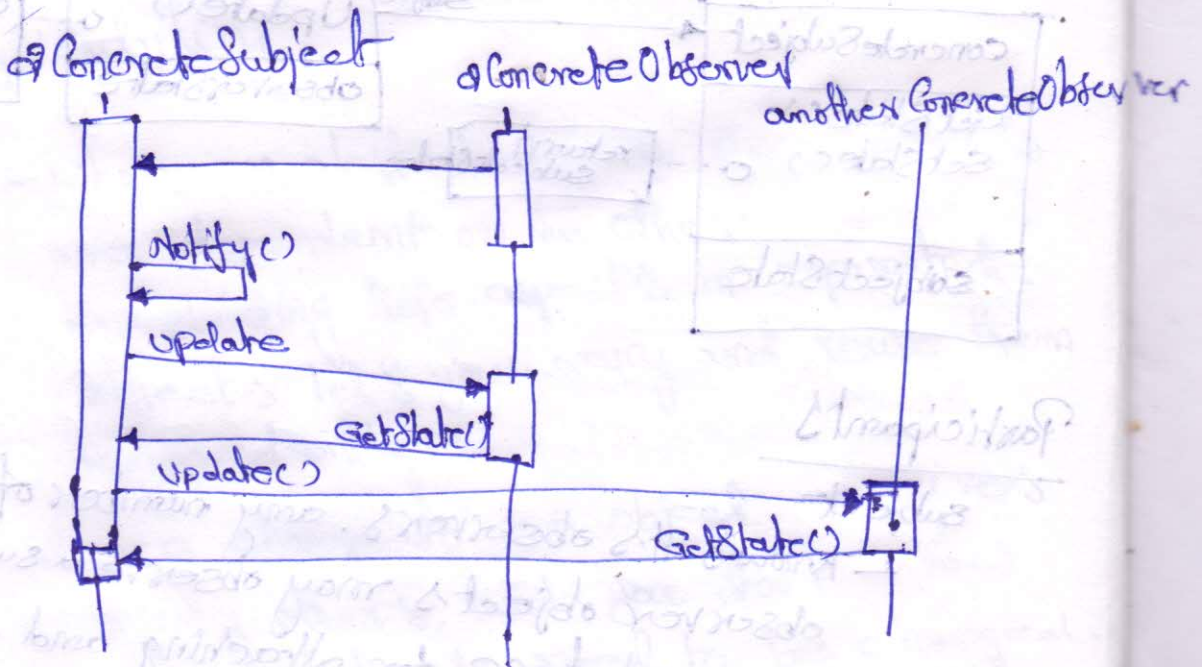 a ConcreteSubject
a ConcreteObserver
another ConcreteObserver
Notify()
update
GetState()
update()
GetState()